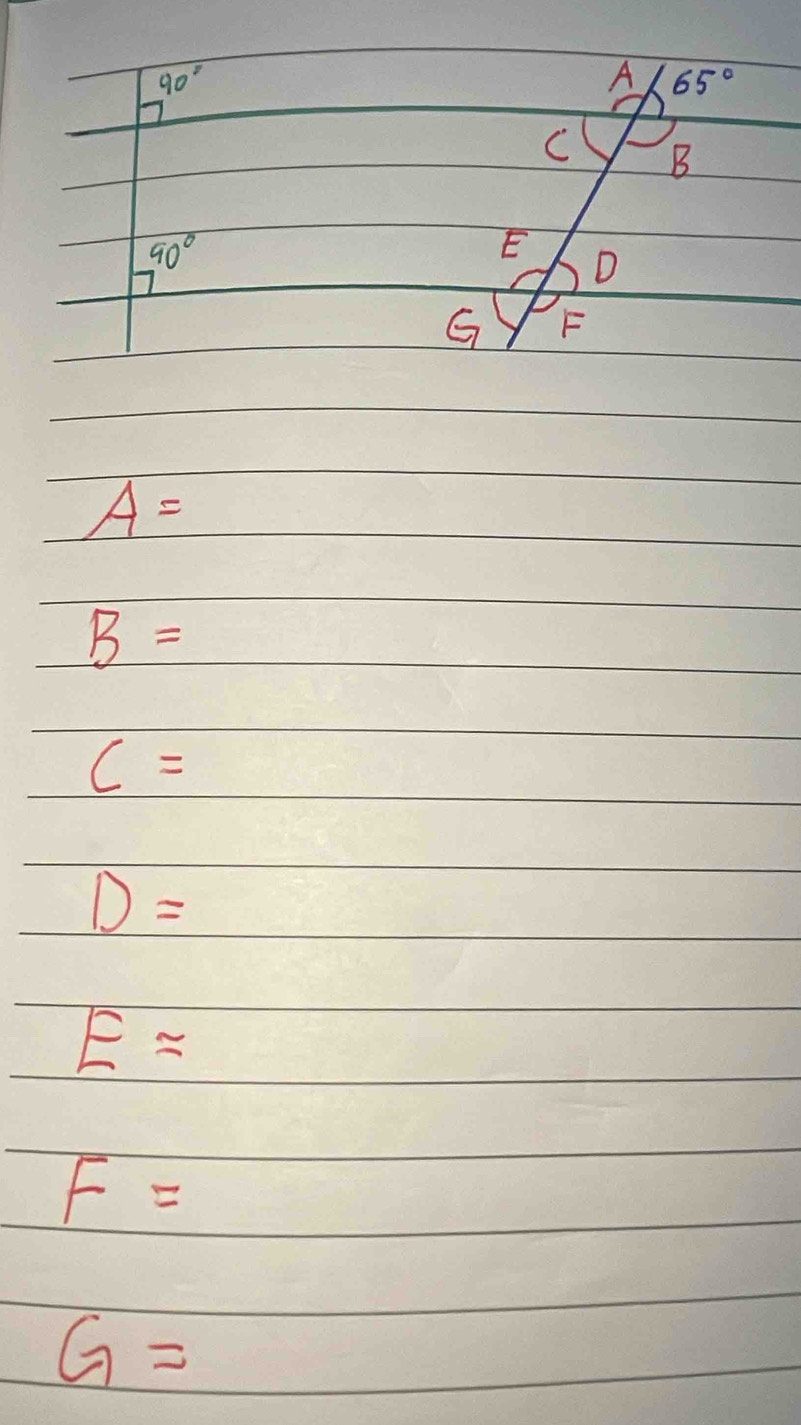 90°
A 65°
C B
90°
E D
G F
A =
B =
C =
D =
E =
F =
G =